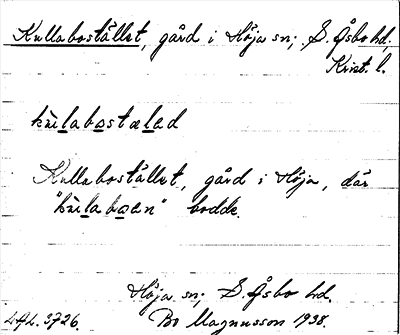 Kullabostället, gård i Höja sn; S. Åsbo hd,
Krist. l.
kùlabostæled
Kullabostället, gård i Höja, där
"kùlaboen" bodde.
Höja sn; S. Åsbo hd.
LAL. 3726. Bo Magnusson 1938.